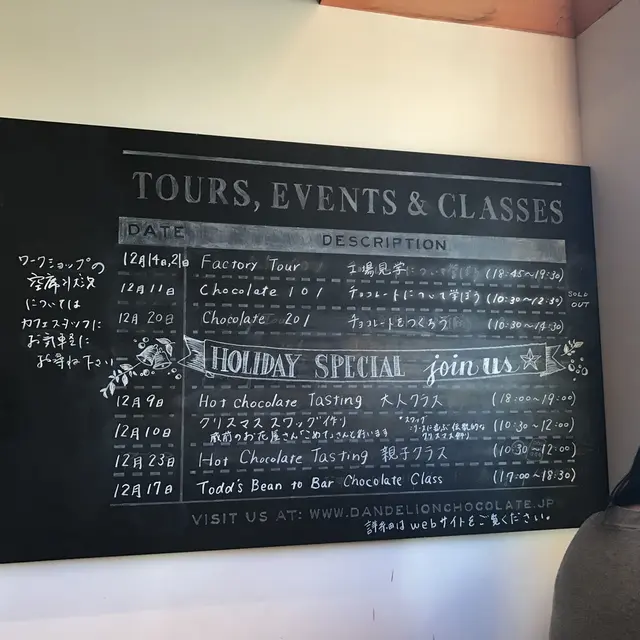 TOURS, EVENTS & CLASSES
DATE DESCRIPTION
12月14日,21日 Factory Tour 工場見学について学ぼう (18:45~19:30)
12月11日 Chocolate 101 チョコレートについて学ぼう (10:30~12:30) SOLD OUT
12月20日 Chocolate 201 チョコレートをつくろう (10:30~14:30)
HOLIDAY SPECIAL join us
12月9日 Hot chocolate Tasting 大人クラス (18:00~19:00)
12月10日 クリスマス スワッグ作り *スワッグ (10:30~12:00)
蔵前のお花屋さん「こめて」さんと行います
クリスマス飾り
12月23日 Hot Chocolate Tasting 親子クラス (10:30~12:00)
12月17日 Todd's Bean to Bar Chocolate Class (17:00~18:30)
VISIT US AT: WWW.DANDELIONCHOCOLATE.JP
詳細はwebサイトをご覧ください。
ワークショップの
空席状況
については
カフェスタッフに
お気軽に
お尋ね下さい